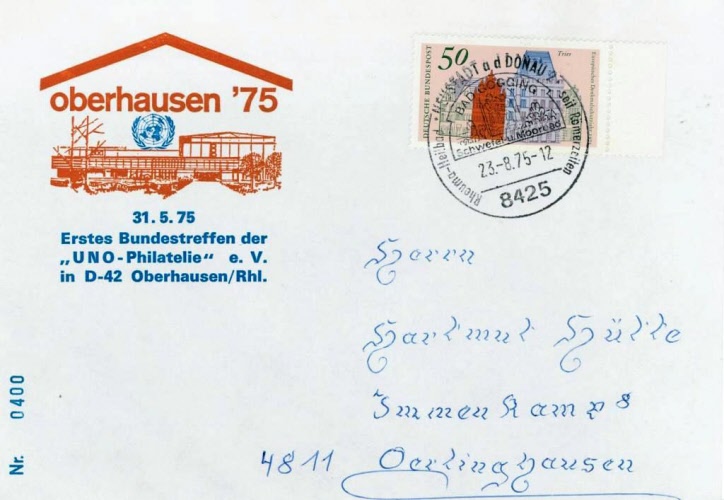 oberhausen '75
31.5.75
Erstes Bundestreffen der
„UNO-Philatelie" e. V.
in D-42 Oberhausen/Rhl.
Nr. 0400
50
Trier
DEUTSCHE BUNDESPOST
NEUSTADT a d DONAU 2
BAD GÖGGING
Schwefel u. Moorbad
Rheuma-Heilbad
seit Römerzeiten
23.-8.75-12
8425
Herrn
Hartmut Hülle
Immenkamp 8
4811 Oerlinghausen